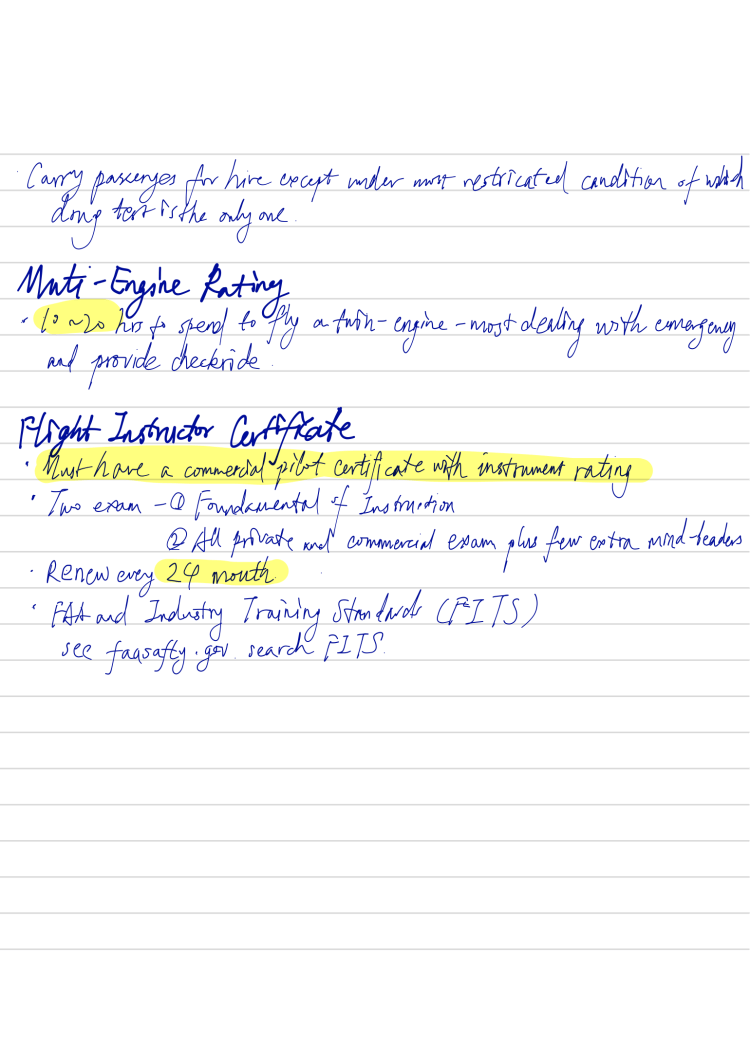 · Carry passenges for hire except under most restricated condition of which
drug test is the only one.
Muti-Engine Rating
· 10~20 hrs to spend to fly a twin-engine - most dealing with emergency
and provide checkride.
Flight Instructor Certificate
· Must have a commercial pilot certificate with instrument rating
· Two exam - ① Foundamental of Instruction
② All private and commercial exam plus few extra mind-beaders
· Renew every 24 month.
· FAA and Industry Training Standards (FITS)
see faasafty.gov. search FITS.